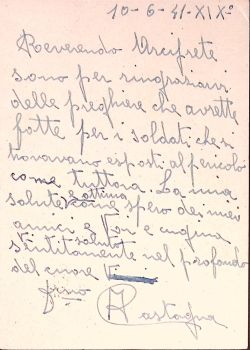 10-6-41-XIXº
Reverendo Arciprete
sono per ringraziarvi
delle preghiere che avrette
fatte per i soldati che si
trovavano esposti al pericolo
come tuttora. La mia
salute è ottima
come spero dei miei
amici e Voi e cugina
sentitamente saluto nel profondo
del cuore
firmo
Castagna